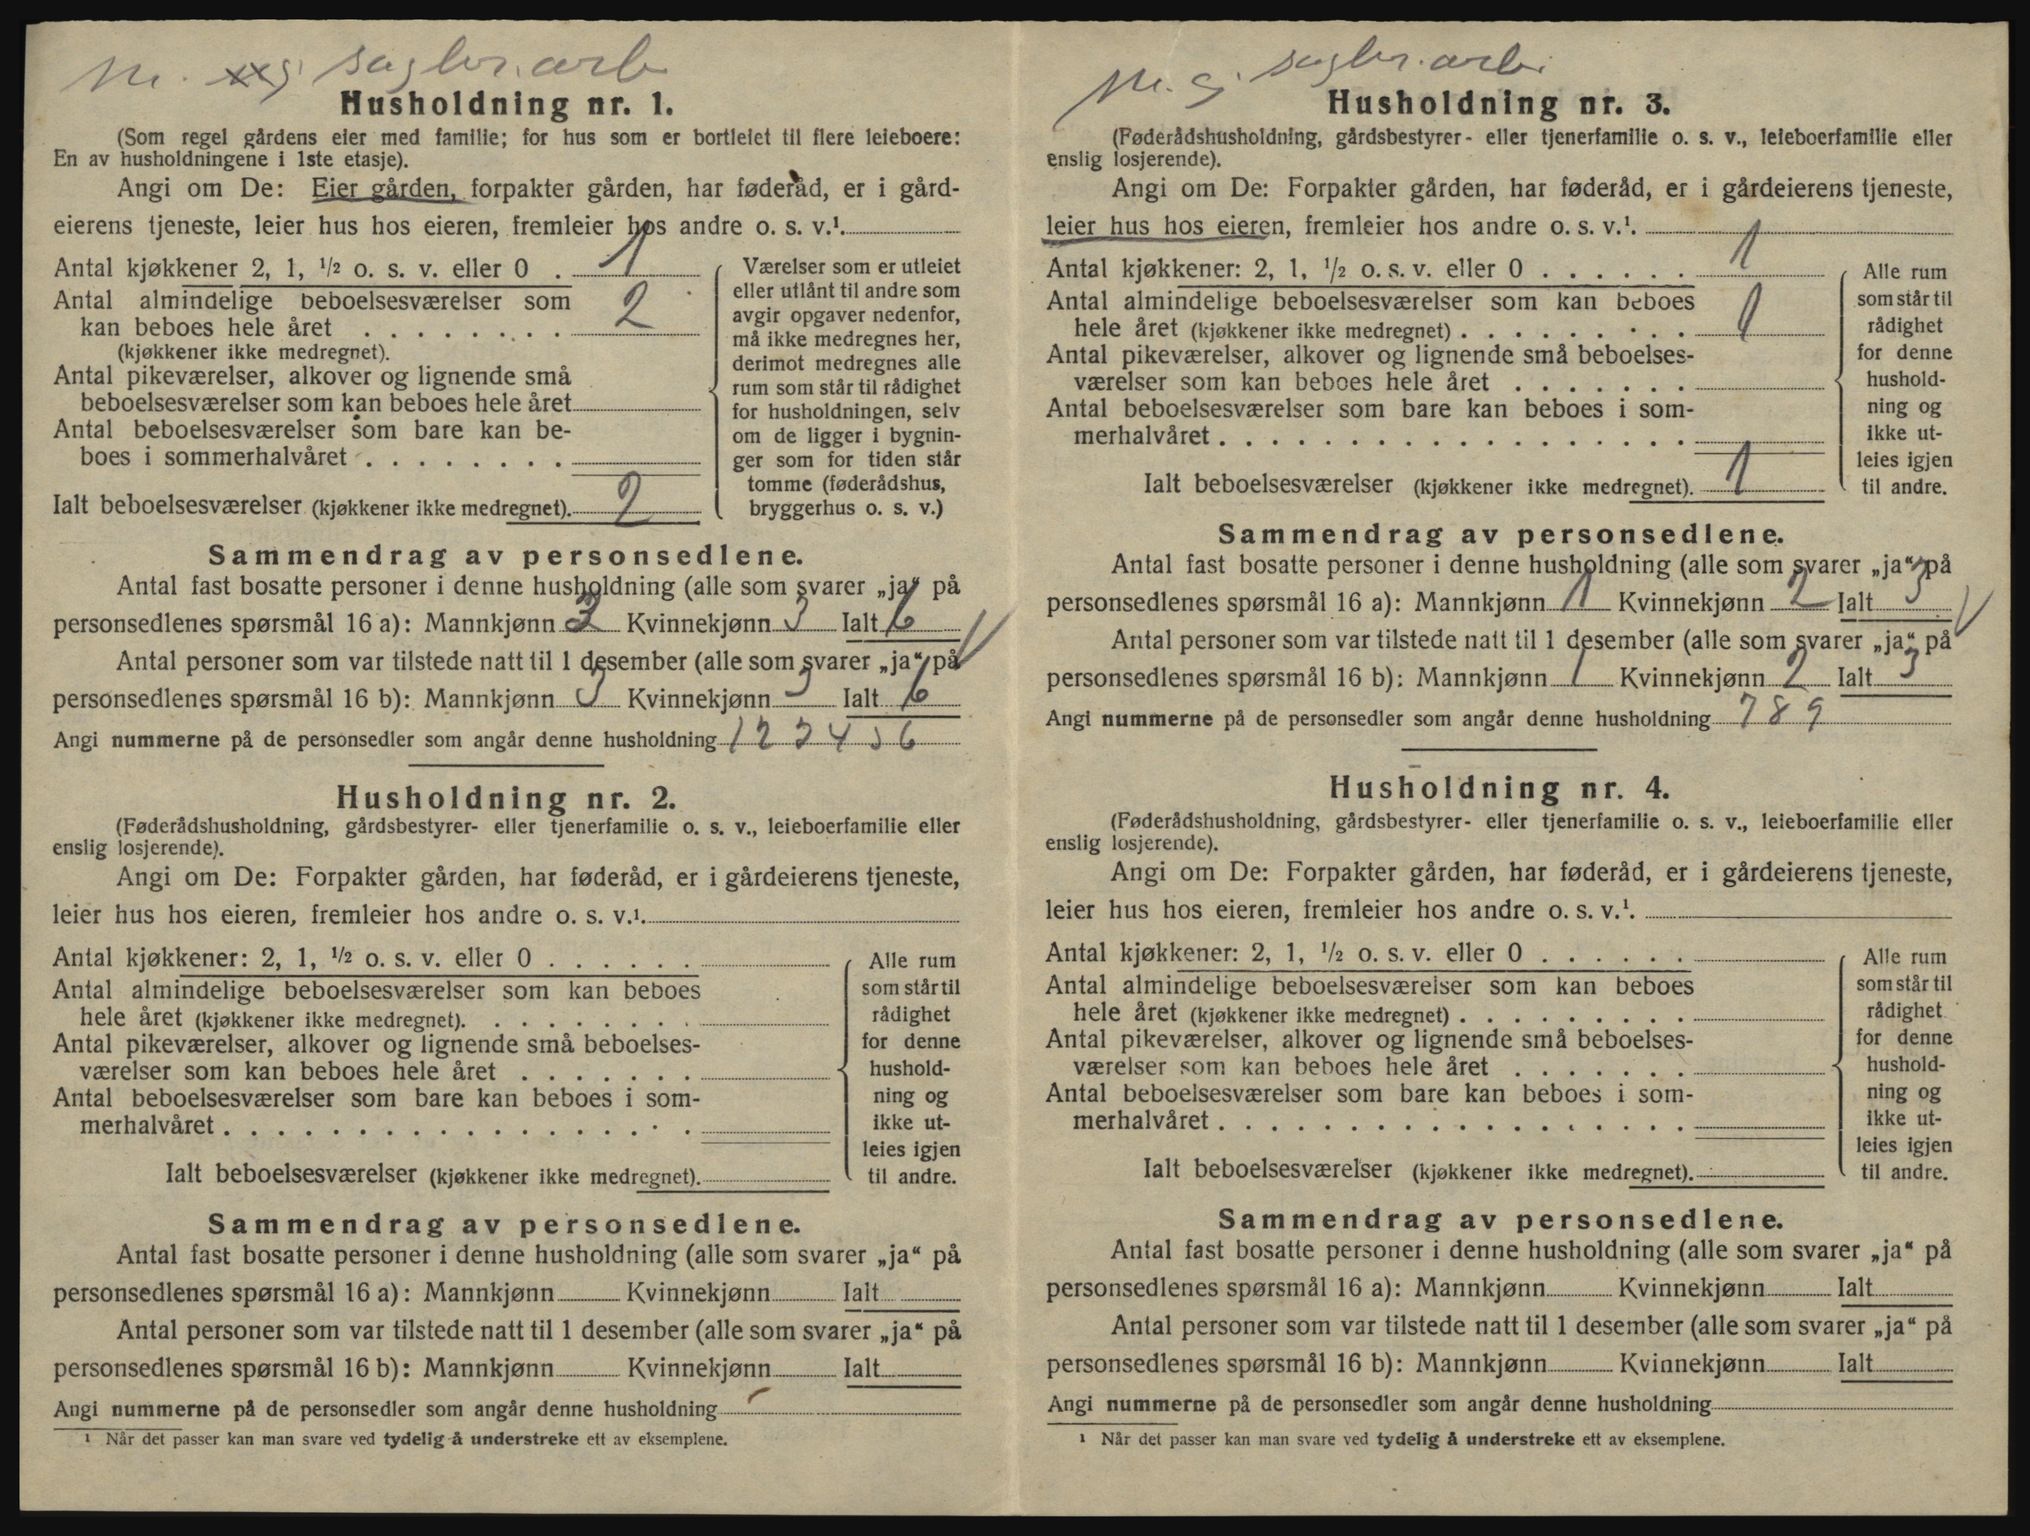 m. g. sagbr. arb
Husholdning nr. 1.
(Som regel gårdens eier med familie; for hus som er bortleiet til flere leieboere:
En av husholdningene i 1ste etasje).
Angi om De: Eier gården, forpakter gården, har føderåd, er i gård-
eierens tjeneste, leier hus hos eieren, fremleier hos andre o. s. v.¹.
Antal kjøkkener 2, 1, ½ o. s. v. eller 0 . 1
Antal almindelige beboelsesværelser som
kan beboes hele året . . . . . . . . 2
(kjøkkener ikke medregnet).
Antal pikeværelser, alkover og lignende små
beboelsesværelser som kan beboes hele året
Antal beboelsesværelser som bare kan be-
boes i sommerhalvåret . . . . . . . .
Ialt beboelsesværelser (kjøkkener ikke medregnet). 2
Værelser som er utleiet
eller utlånt til andre som
avgir opgaver nedenfor,
må ikke medregnes her,
derimot medregnes alle
rum som står til rådighet
for husholdningen, selv
om de ligger i bygnin-
ger som for tiden står
tomme (føderådshus,
bryggerhus o. s. v.)
Sammendrag av personsedlene.
Antal fast bosatte personer i denne husholdning (alle som svarer „ja“ på
personsedlenes spørsmål 16 a): Mannkjønn 3 Kvinnekjønn 3 Ialt 6
Antal personer som var tilstede natt til 1 desember (alle som svarer „ja“ på
personsedlenes spørsmål 16 b): Mannkjønn 3 Kvinnekjønn 3 Ialt 6
Angi nummerne på de personsedler som angår denne husholdning 1 2 3 4 5 6
Husholdning nr. 2.
(Føderådshusholdning, gårdsbestyrer- eller tjenerfamilie o. s. v., leieboerfamilie eller
enslig losjerende).
Angi om De: Forpakter gården, har føderåd, er i gårdeierens tjeneste,
leier hus hos eieren, fremleier hos andre o. s. v.¹.
Antal kjøkkener: 2, 1, ½ o. s. v. eller 0 . . . . . .
Antal almindelige beboelsesværelser som kan beboes
hele året (kjøkkener ikke medregnet). . . . . . . . .
Antal pikeværelser, alkover og lignende små beboelses-
værelser som kan beboes hele året . . . . . . .
Antal beboelsesværelser som bare kan beboes i som-
merhalvåret . . . . . . . . . . . . . . . . . .
Ialt beboelsesværelser (kjøkkener ikke medregnet).
Alle rum
som står til
rådighet
for denne
hushold-
ning og
ikke ut-
leies igjen
til andre.
Sammendrag av personsedlene.
Antal fast bosatte personer i denne husholdning (alle som svarer „ja“ på
personsedlenes spørsmål 16 a): Mannkjønn Kvinnekjønn Ialt
Antal personer som var tilstede natt til 1 desember (alle som svarer „ja“ på
personsedlenes spørsmål 16 b): Mannkjønn Kvinnekjønn Ialt
Angi nummerne på de personsedler som angår denne husholdning
¹ Når det passer kan man svare ved tydelig å understreke ett av eksemplene.
m. g. sagbr. arb.
Husholdning nr. 3.
(Føderådshusholdning, gårdsbestyrer- eller tjenerfamilie o. s. v., leieboerfamilie eller
enslig losjerende).
Angi om De: Forpakter gården, har føderåd, er i gårdeierens tjeneste,
leier hus hos eieren, fremleier hos andre o. s. v.¹.
Antal kjøkkener: 2, 1, ½ o. s. v. eller 0 . . . . . . 1
Antal almindelige beboelsesværelser som kan beboes
hele året (kjøkkener ikke medregnet) . . . . . . . . . 1
Antal pikeværelser, alkover og lignende små beboelses-
værelser som kan beboes hele året . . . . . . .
Antal beboelsesværelser som bare kan beboes i som-
merhalvåret . . . . . . . . . . . . . . . . . .
Ialt beboelsesværelser (kjøkkener ikke medregnet). 1
Alle rum
som står til
rådighet
for denne
hushold-
ning og
ikke ut-
leies igjen
til andre.
Sammendrag av personsedlene.
Antal fast bosatte personer i denne husholdning (alle som svarer „ja“ på
personsedlenes spørsmål 16 a): Mannkjønn 1 Kvinnekjønn 2 Ialt 3
Antal personer som var tilstede natt til 1 desember (alle som svarer „ja“ på
personsedlenes spørsmål 16 b): Mannkjønn 1 Kvinnekjønn 2 Ialt 3
Angi nummerne på de personsedler som angår denne husholdning 7 8 9
Husholdning nr. 4.
(Føderådshusholdning, gårdsbestyrer- eller tjenerfamilie o. s. v., leieboerfamilie eller
enslig losjerende).
Angi om De: Forpakter gården, har føderåd, er i gårdeierens tjeneste,
leier hus hos eieren, fremleier hos andre o. s. v.¹.
Antal kjøkkener: 2, 1, ½ o. s. v. eller 0 . . . . . .
Antal almindelige beboelsesværelser som kan beboes
hele året (kjøkkener ikke medregnet) . . . . . . . . .
Antal pikeværelser, alkover og lignende små beboelses-
værelser som kan beboes hele året . . . . . . .
Antal beboelsesværelser som bare kan beboes i som-
merhalvåret . . . . . . . . . . . . . . . . . .
Ialt beboelsesværelser (kjøkkener ikke medregnet).
Alle rum
som står til
rådighet
for denne
hushold-
ning og
ikke ut-
leies igjen
til andre.
Sammendrag av personsedlene.
Antal fast bosatte personer i denne husholdning (alle som svarer „ja“ på
personsedlenes spørsmål 16 a): Mannkjønn Kvinnekjønn Ialt
Antal personer som var tilstede natt til 1 desember (alle som svarer „ja“ på
personsedlenes spørsmål 16 b): Mannkjønn Kvinnekjønn Ialt
Angi nummerne på de personsedler som angår denne husholdning
¹ Når det passer kan man svare ved tydelig å understreke ett av eksemplene.